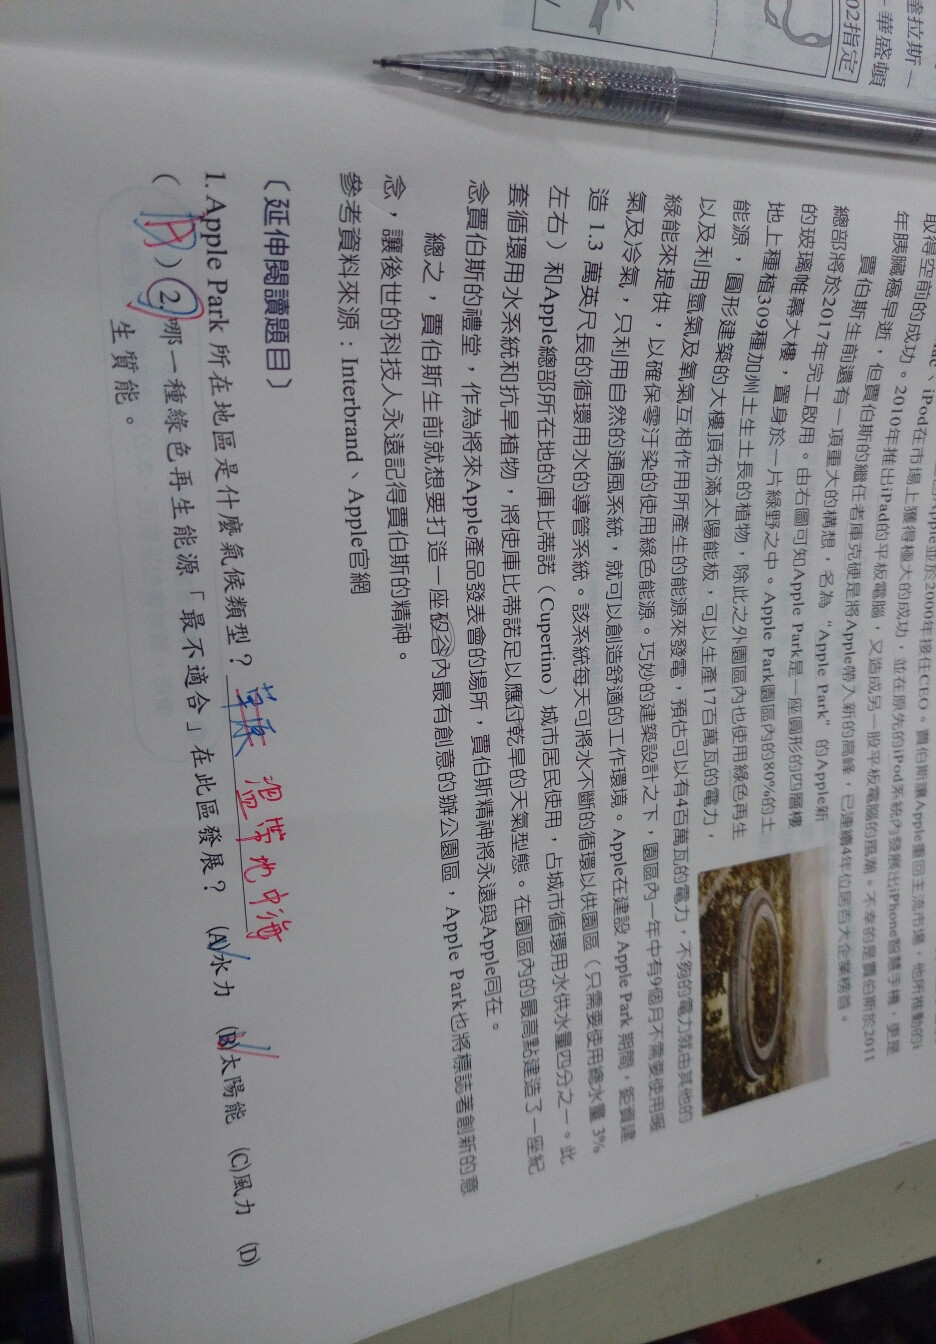 塞拉斯—
華盛頓
02指定
取得空前的成功。2010年推出iPad的平板電腦，又造成另一股平板電腦的風潮。不幸的是賈伯斯於2011
年胰臟癌早逝，但賈伯斯的繼任者庫克硬是將Apple帶入新的高峰，已連續4年位居百大企業榜首。
賈伯斯生前還有一項重大的構想，名為“Apple Park”的Apple新
總部將於2017年完工啟用。由右圖可知Apple Park是一座圓形的四層樓
的玻璃帷幕大樓，置身於一片綠野之中。Apple Park園區內的80%的土
地上種植309種加州土生土長的植物，除此之外園區內也使用綠色再生
能源，圓形建築的大樓頂布滿太陽能板，可以生產17百萬瓦的電力，
以及利用氫氣及氧氣互相作用所產生的能源來發電，預估可以有4百萬瓦的電力，不夠的電力就由其他的
綠能來提供，以確保零汙染的使用綠色能源。巧妙的建築設計之下，園區內一年中有9個月不需要使用暖
氣及冷氣，只利用自然的通風系統，就可以創造舒適的工作環境。Apple在建設 Apple Park 期間，鉅資建
造 1.3 萬英尺長的循環用水的導管系統。該系統每天可將水不斷的循環以供園區（只需要使用總水量 3%
左右）和Apple總部所在地的庫比蒂諾（Cupertino）城市居民使用，占城市循環用水供水量四分之一。此
套循環用水系統和抗旱植物，將使庫比蒂諾足以應付乾旱的天氣型態。在園區內的最高點建造了一座紀
念賈伯斯的禮堂，作為將來Apple產品發表會的場所，賈伯斯精神將永遠與Apple同在。
總之，賈伯斯生前就想要打造一座矽谷內最有創意的辦公園區，Apple Park也將標誌著創新的意
念，讓後世的科技人永遠記得賈伯斯的精神。
參考資料來源：Interbrand、Apple官網
〔延伸閱讀題目〕
1. Apple Park 所在地區是什麼氣候類型？ 草原 溫帶地中海
（ A ）2. 哪一種綠色再生能源「最不適合」在此區發展？ (A)水力 (B)太陽能 (C)風力 (D)
生質能。